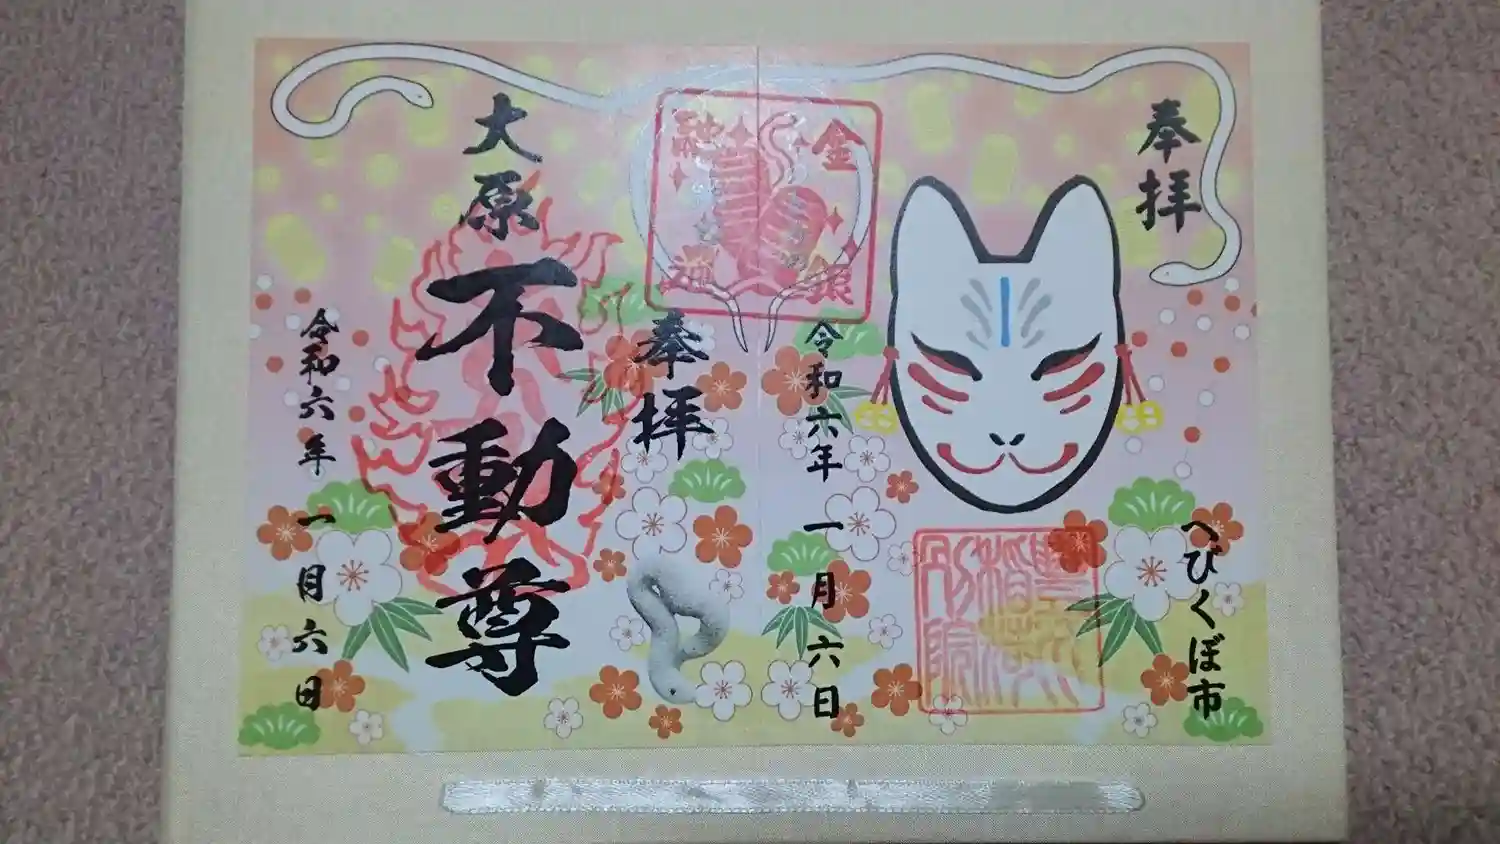 奉拝
へびくぼ市
令和六年 一月六日
金銀
奉拝
大原不動尊
令和六年 一月六日